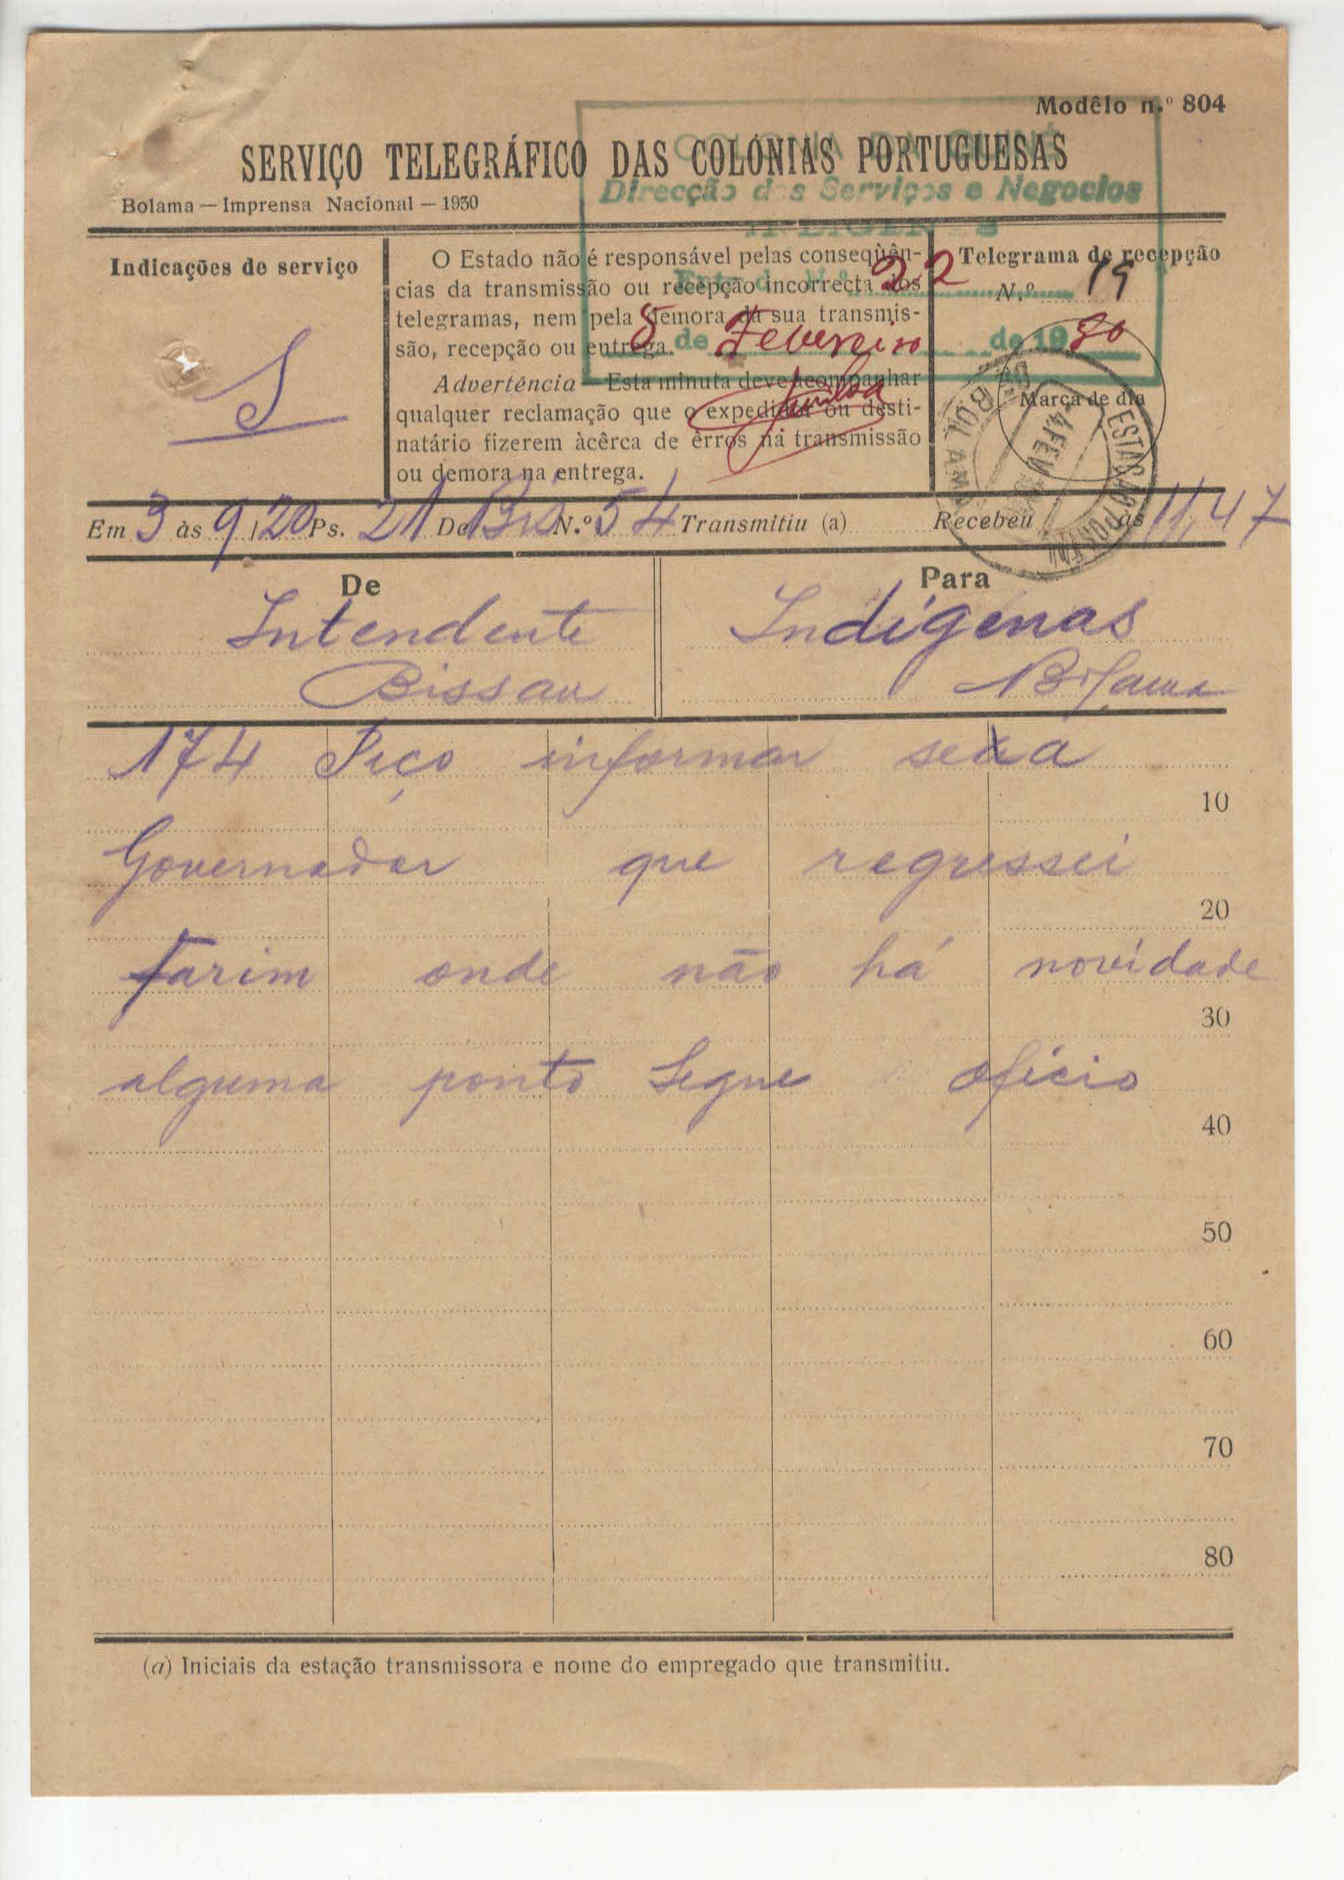 Modêlo n.º 804
SERVIÇO TELEGRÁFICO DAS COLÓNIAS PORTUGUESAS
Bolama — Imprensa Nacional — 1930
Direcção dos Serviços e Negocios
Indicações de serviço
S
O Estado não é responsável pelas conseqüên-
cias da transmissão ou recepção incorrecta dos
telegramas, nem pela demora da sua transmis-
são, recepção ou entrega.
Advertência — Esta minuta deve acompanhar
qualquer reclamação que o expedidor ou desti-
natário fizerem àcêrca de êrros na transmissão
ou demora na entrega.
22
5 de Fevereiro de 1930
Telegrama de recepção
N.º 19
Marca de dia
4 FEV
BOLAMA
Em 3 às 9,20 Ps. 21 De Bis N.º 54 Transmitiu (a) Recebeu às 11,47
De
Intendente
Bissau
Para
Indígenas
Bolama
174 Peço informar sexa
10
Governador que regressei
20
Farim onde não há novidade
30
alguma ponto Segue ofício
40
50
60
70
80
(a) Iniciais da estação transmissora e nome do empregado que transmitiu.